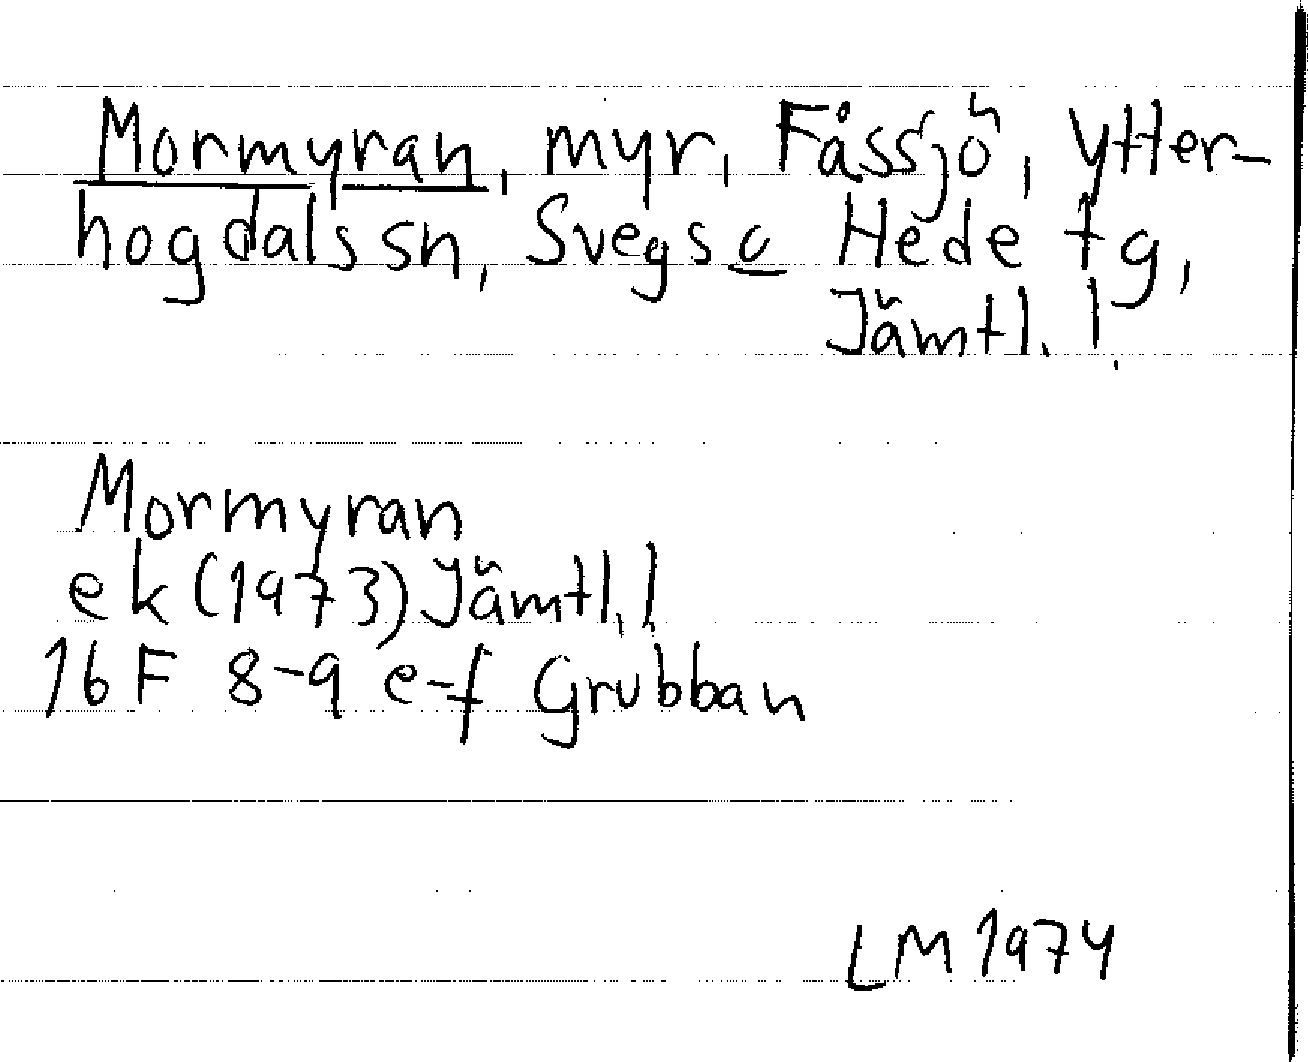 Mormyran, myr, Fåssjö, Ytter-
hogdals sn, Svegs o Hede tg,
Jämtl. l.
Mormyran
ek (1973) Jämtl. l.
16 F 8-9 e-f Grubban
LM 1974